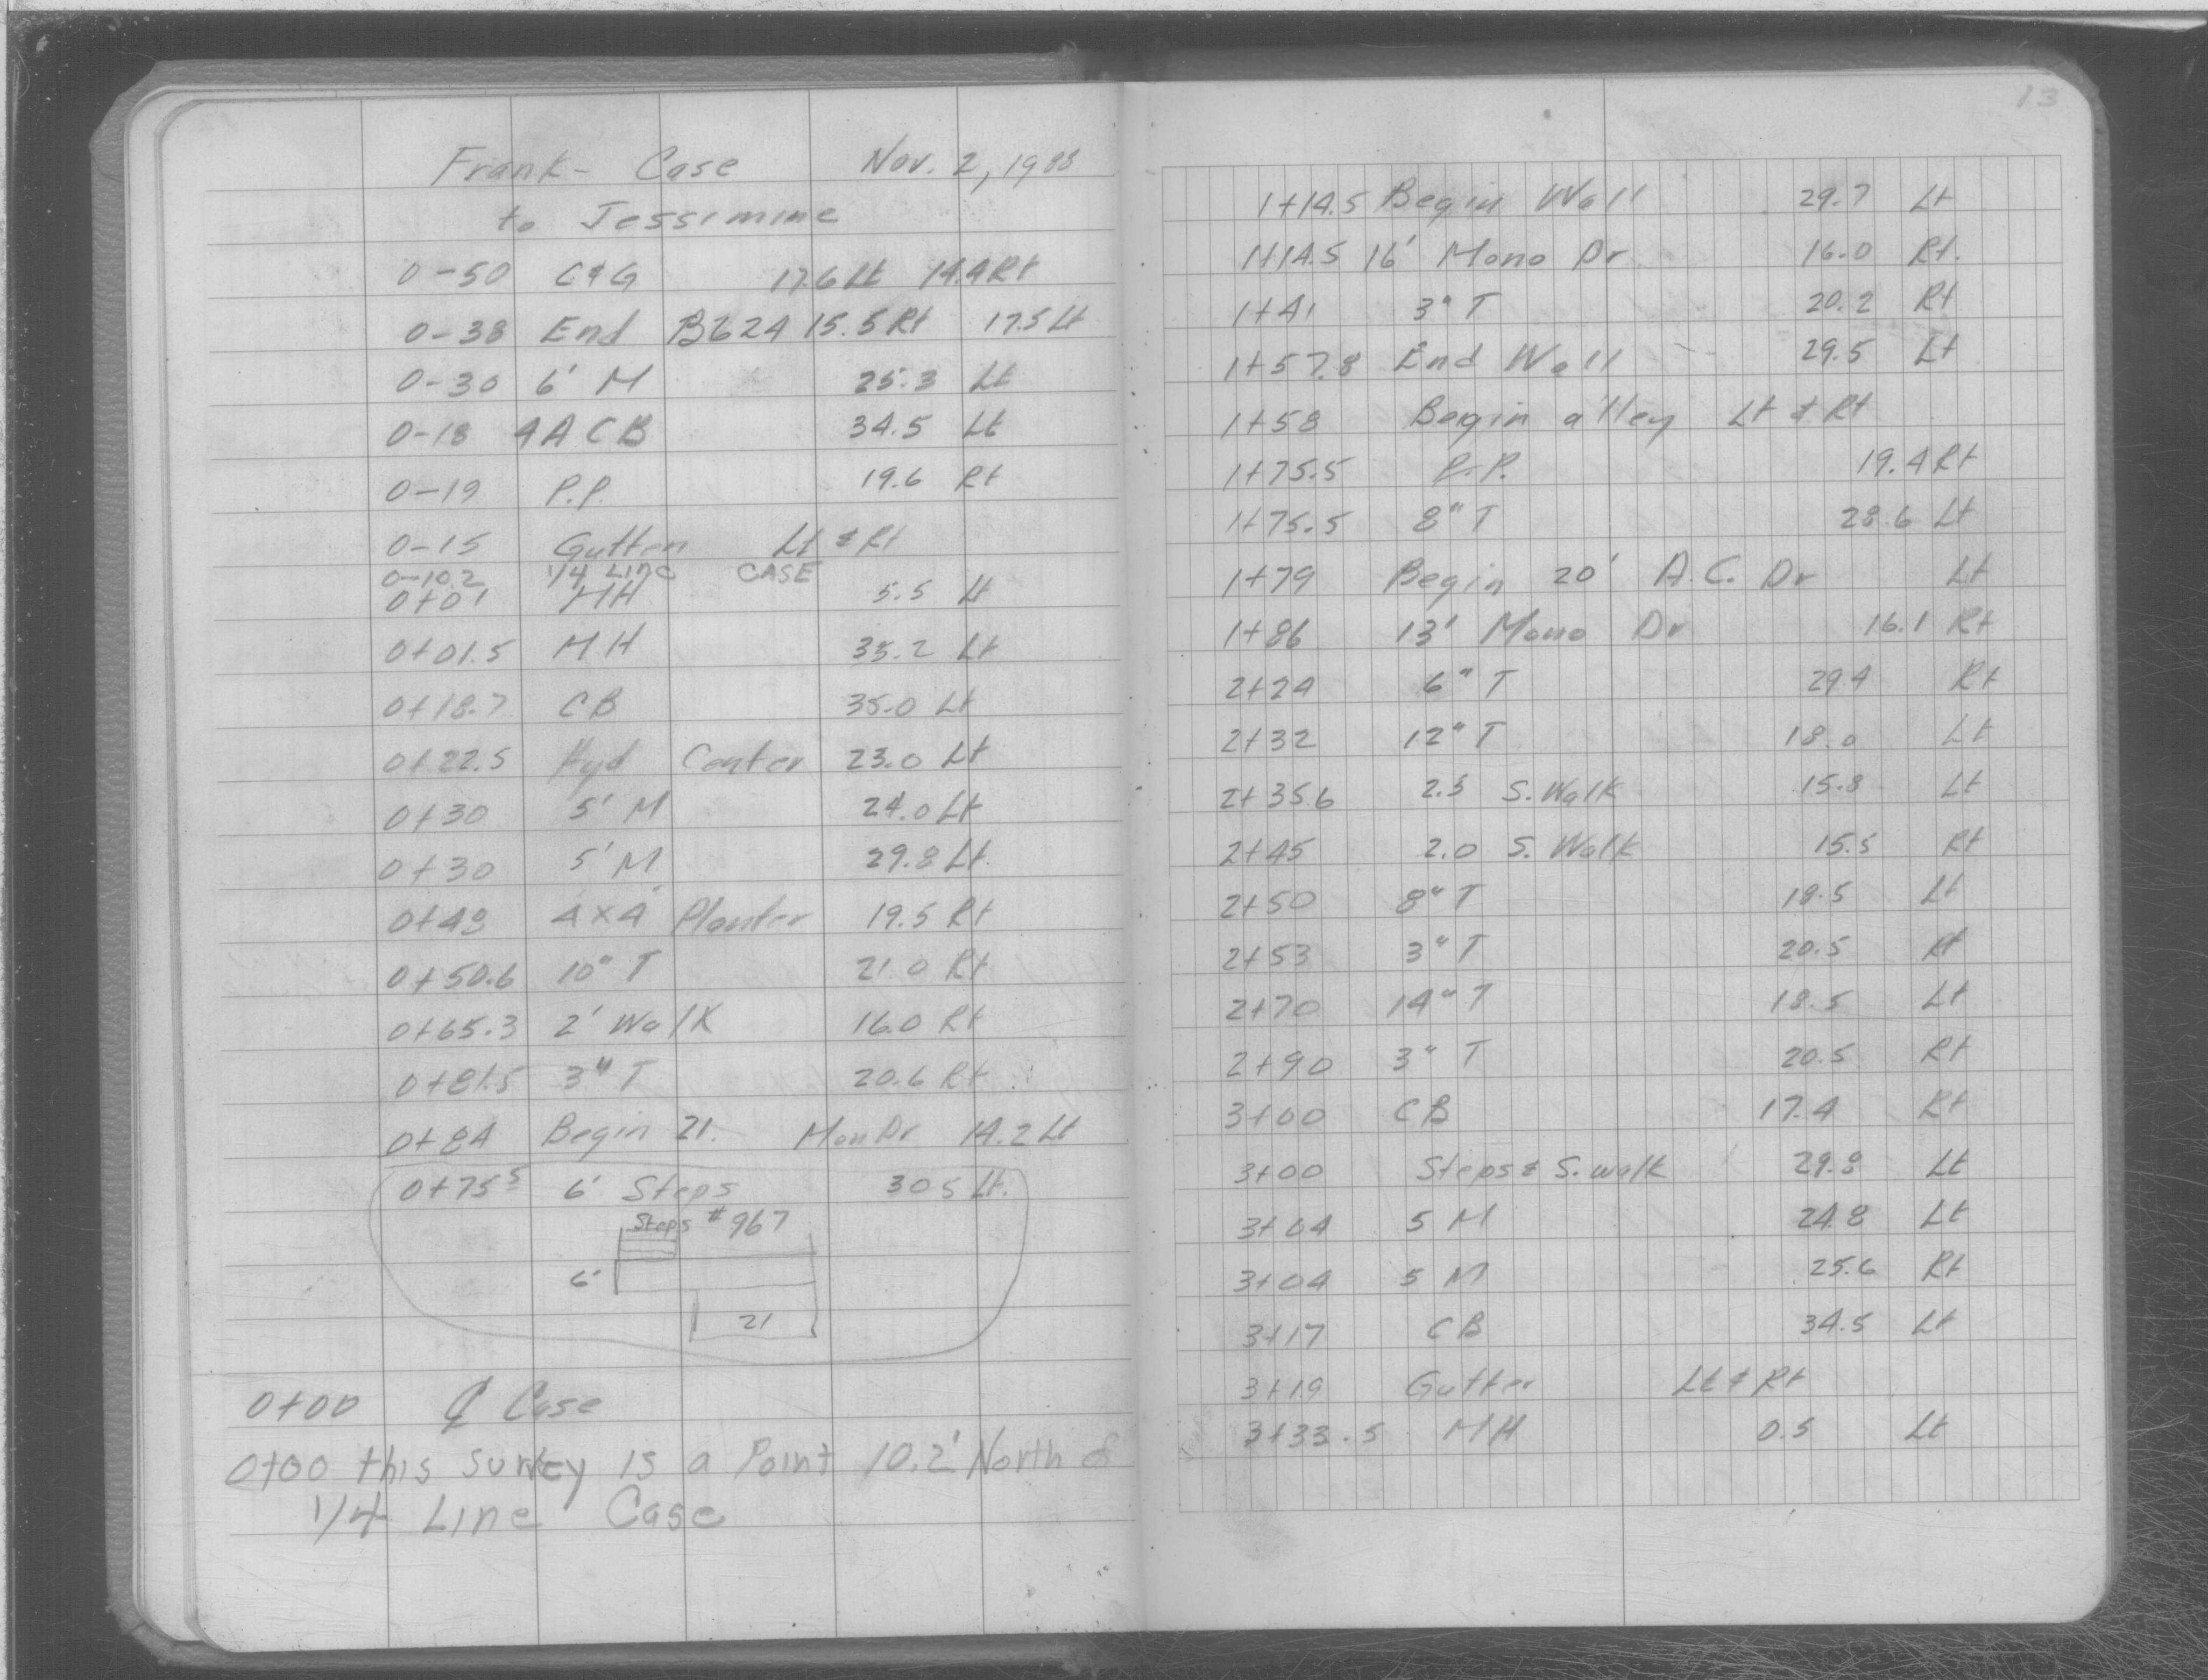 Frank - Case Nov. 2, 1988
to Jessimine
0-50 C&G 17.6 Lt 14.4 Rt
0-38 End B624 15.5 Rt 17.5 Lt
0-30 6' M 25.3 Lt
0-18 4A CB 34.5 Lt
0-19 P.P. 19.6 Rt
0-15 Gutter Lt & Rt
0-10.2 1/4 LINE CASE
0+01 MH 5.5 Lt
0+01.5 MH 35.2 Lt
0+18.7 CB 35.0 Lt
0+22.5 Hyd Center 23.0 Lt
0+30 5' M 24.0 Lt
0+30 5' M 29.8 Lt.
0+48 4x4' Planter 19.5 Rt
0+50.6 10" T 21.0 Rt
0+65.3 2' Walk 16.0 Rt
0+81.5 3" T 20.6 Rt
0+84 Begin 21. Mon Dr 14.2 Lt
0+75 5 6' Steps 30 5 Lt.
Steps #967
6'
21
0+00 ℄ Case
0+00 this survey is a Point 10.2' North of
1/4 Line Case
13
1+14.5 Begin Wall 29.7 Lt
1+14.5 16' Mono Dr 16.0 Rt.
1+41 3" T 20.2 Rt
1+57.8 End Wall 29.5 Lt
1+58 Begin alley Lt & Rt
1+75.5 P.P. 19.4 Rt
1+75.5 8" T 28.6 Lt
1+79 Begin 20' A.C. Dr Lt
1+86 13' Mono Dr 16.1 Rt
2+24 6" T 29.4 Rt
2+32 12" T 18.0 Lt
2+35.6 2.5 S. Walk 15.8 Lt
2+45 2.0 S. Walk 15.5 Rt
2+50 8" T 18.5 Lt
2+53 3" T 20.5 Rt
2+70 14" T 18.5 Lt
2+90 3" T 20.5 Rt
3+00 CB 17.4 Rt
3+00 Steps & S. walk 29.8 Lt
3+04 5 M 24.8 Lt
3+04 5 M 25.6 Rt
3+17 CB 34.5 Lt
3+19 Gutter Lt & Rt
3+33.5 MH 0.5 Lt